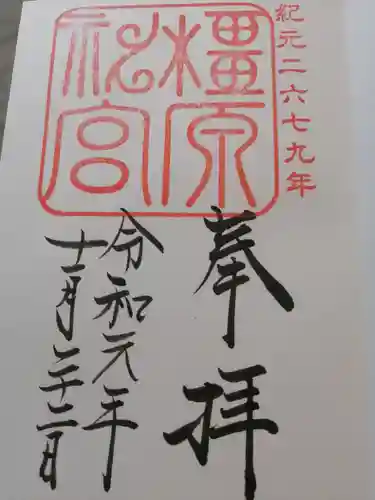 紀元二六七九年
橿原
神宮
奉拝
令和元年
十二月二十二日